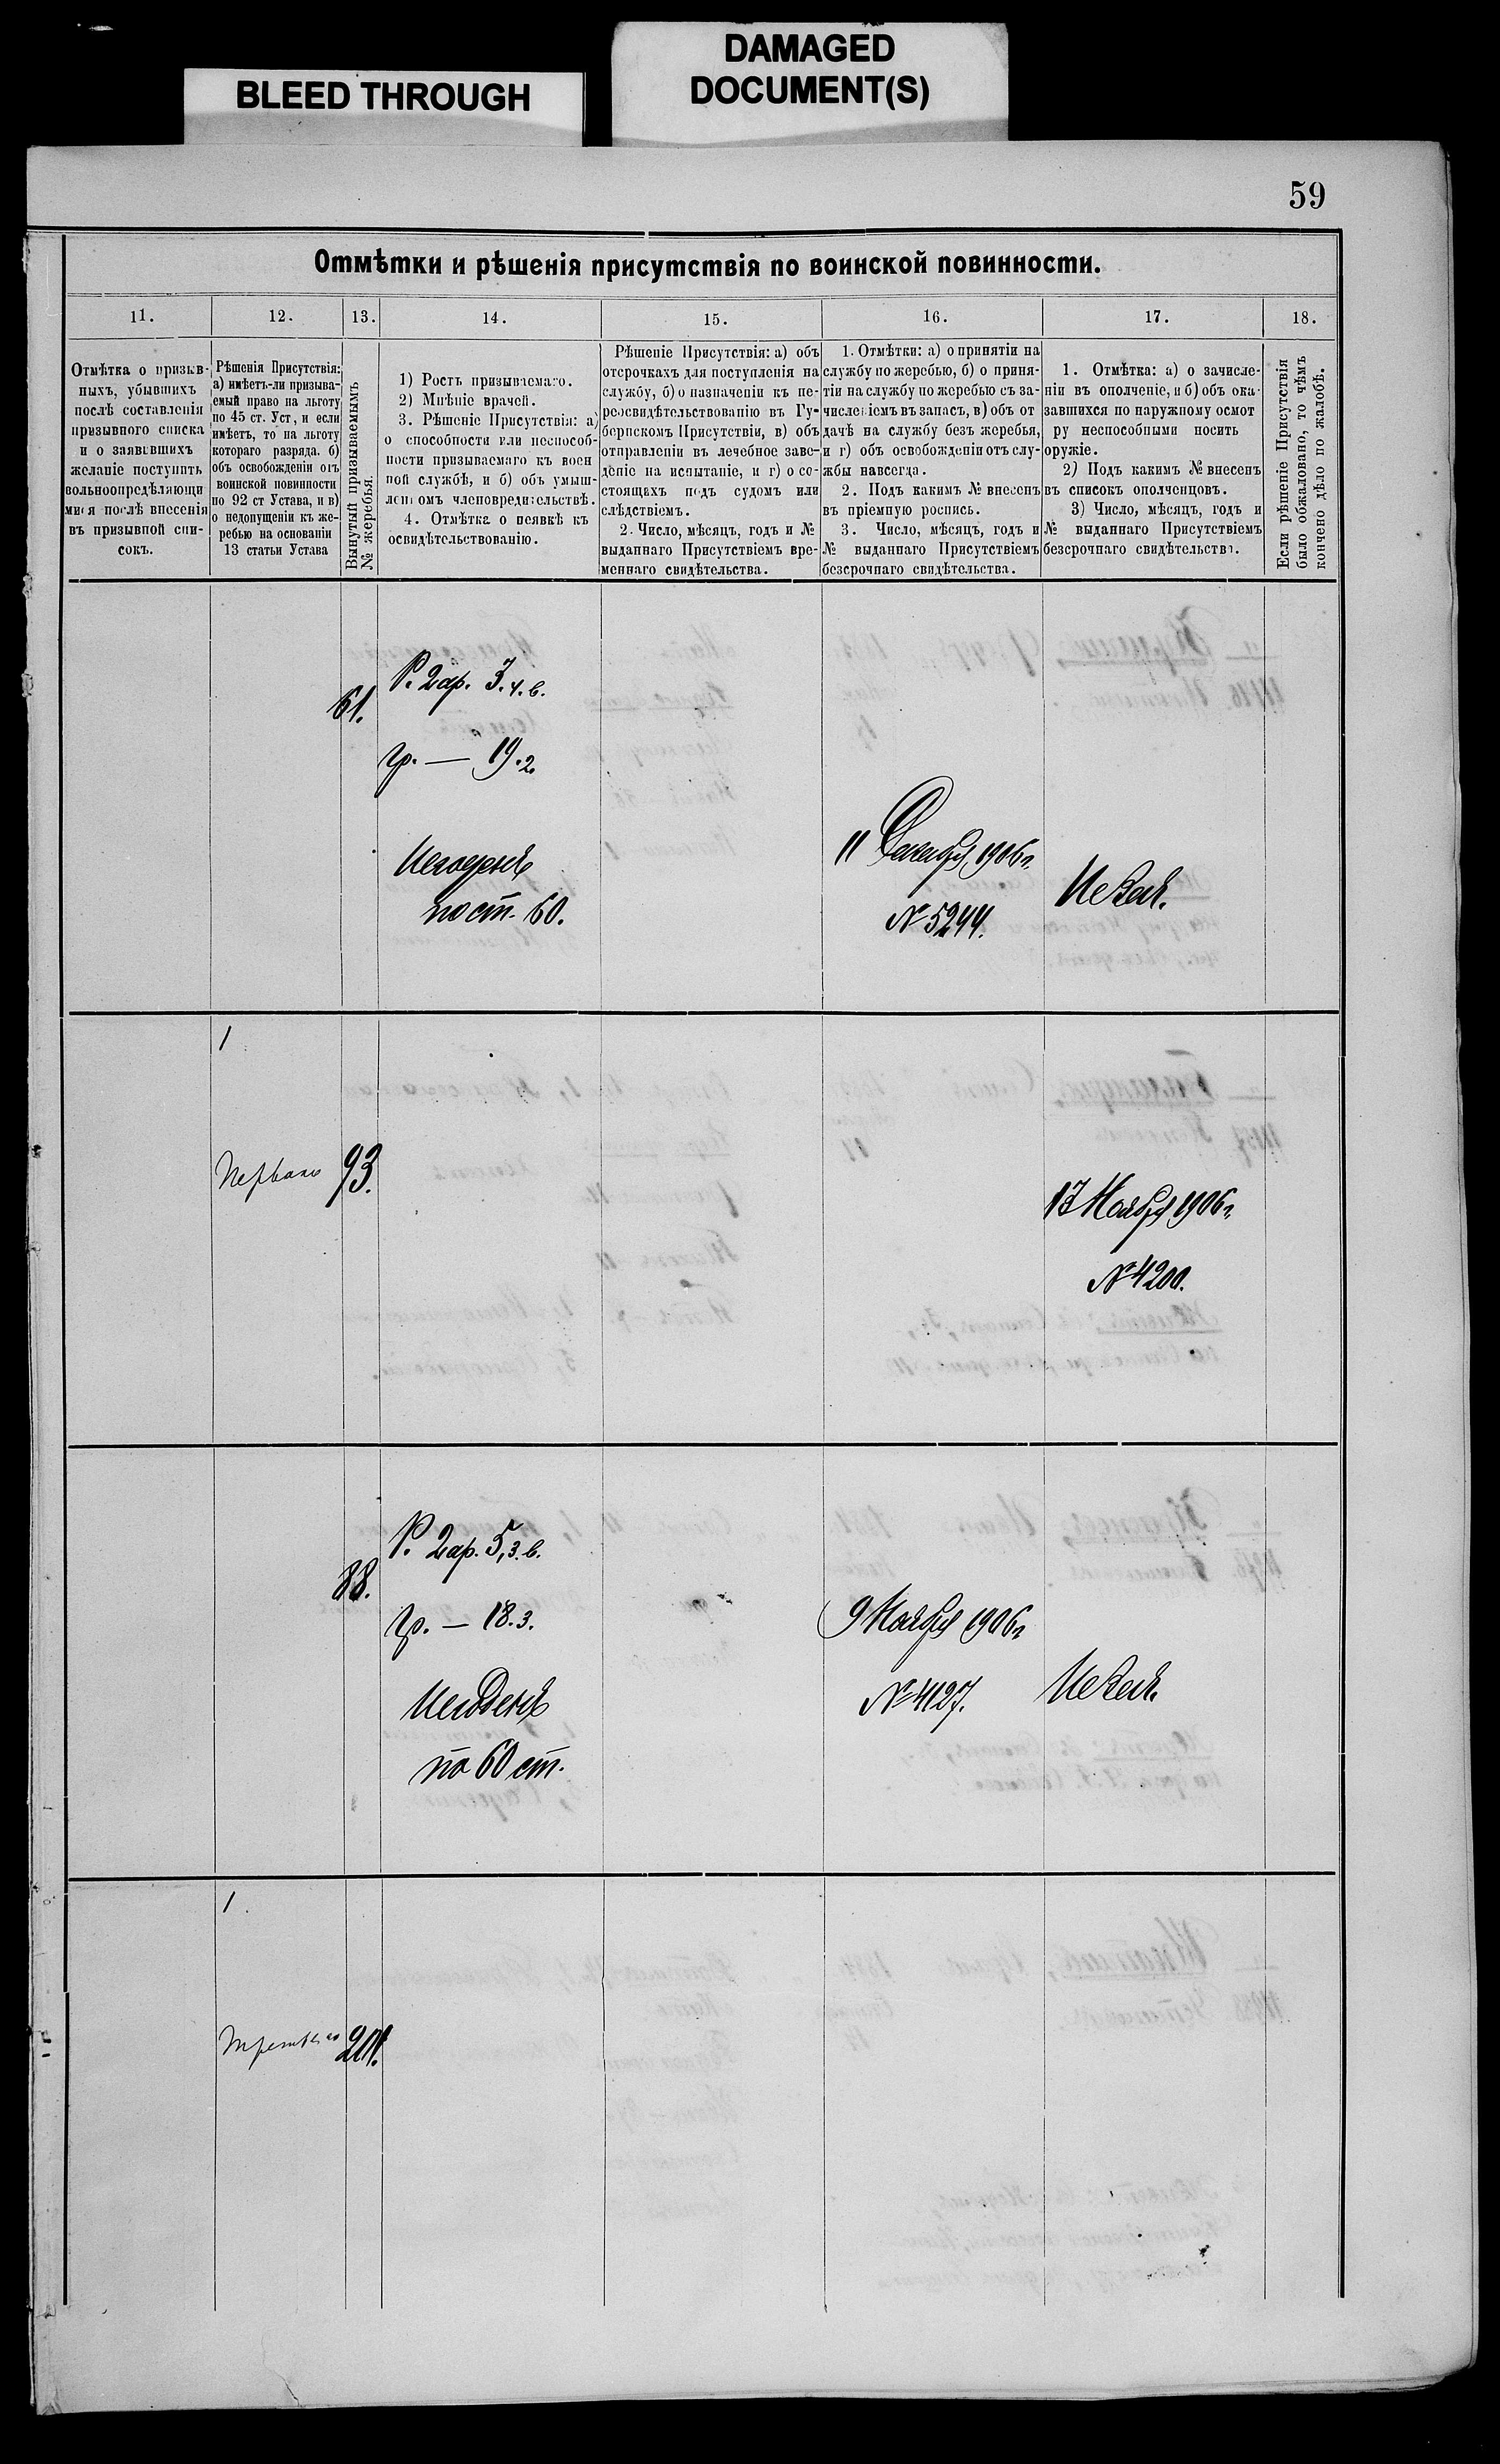 BLEED THROUGH
DAMAGED
DOCUMENT(S)
59
Отмѣтки и рѣшенія присутствія по воинской повинности.
11.
12.
13.
14.
15.
16.
17.
18.
Отмѣтка о призыв-
ныхъ, убывшихъ
послѣ составленія
призывного списка
и о заявившихъ
желаніе поступить
вольноопредѣляющи
мися послѣ внесенія
въ призывной спи-
сокъ.
Рѣшенія Присутствія:
а) имѣетъ-ли призыва-
емый право на льготу
по 45 ст. Уст, и если
имѣетъ, то на льготу
котораго разряда. б)
объ освобожденіи отъ
воинской повинности
по 92 ст Устава, и в)
о недопущеніи къ же-
ребью на основаніи
13 статьи Устава
Вынутый призываемымъ
№ жеребья.
1) Ростъ призываемаго.
2) Мнѣніе врачей.
3. Рѣшеніе Присутствія: а)
о способности или неспособ-
ности призываемаго къ воен
ной службѣ, и б) объ умыш-
ленномъ членовредительствѣ.
4. Отмѣтка о неявкѣ къ
освидѣтельствованію.
Рѣшеніе Присутствія: а) объ
отсрочкахъ для поступленія на
службу, б) о назначеніи къ пе-
реосвидѣтельствованію въ Гу-
бернскомъ Присутствіи, в) объ
отправленіи въ лечебное заве-
деніе на испытаніе, и г) о со-
стоящехъ подъ судомъ или
слѣдствіемъ.
2. Число, мѣсяцъ, годъ и №
выданнаго Присутствіемъ вре-
меннаго свидѣтельства.
1. Отмѣтки: а) о принятіи на
службу по жеребью, б) о приня-
тіи на службу по жеребью съ за-
численіемъ въ запасъ, в) объ от
дачѣ на службу безъ жеребья,
и г) объ освобожденіи отъ слу-
жбы навсегда.
2. Подъ какимъ № внесенъ
въ пріемную роспись.
3. Число, мѣсяцъ, годъ и
№ выданнаго Присутствіемъ
безсрочнаго свидѣтельства.
1. Отмѣтка: а) о зачисле-
ніи въ ополченіе, и б) объ ока-
завшихся по наружному осмот
ру неспособными носить
оружіе.
2) Подъ какимъ № внесенъ
въ списокъ ополченцовъ.
3) Число, мѣсяцъ, годъ и
№ выданнаго Присутствіемъ
безсрочнаго свидѣтельства.
Если рѣшеніе Присутствія
было обжаловано, то чѣмъ
кончено дѣло по жалобѣ.
61.
Р. 2 ар. 3. 4. в.
гр. — 19. 2.
Негоденъ
по ст. 60.
11 Декабря 1906 г.
№ 5244.
1
93.
13 Ноября 1906 г.
№ 4200.
88.
Р. 2 ар. 5, 3. в.
гр. — 18. 3.
Негоденъ
по 60 ст.
9 Ноября 1906 г
№ 4127.
1.
201.